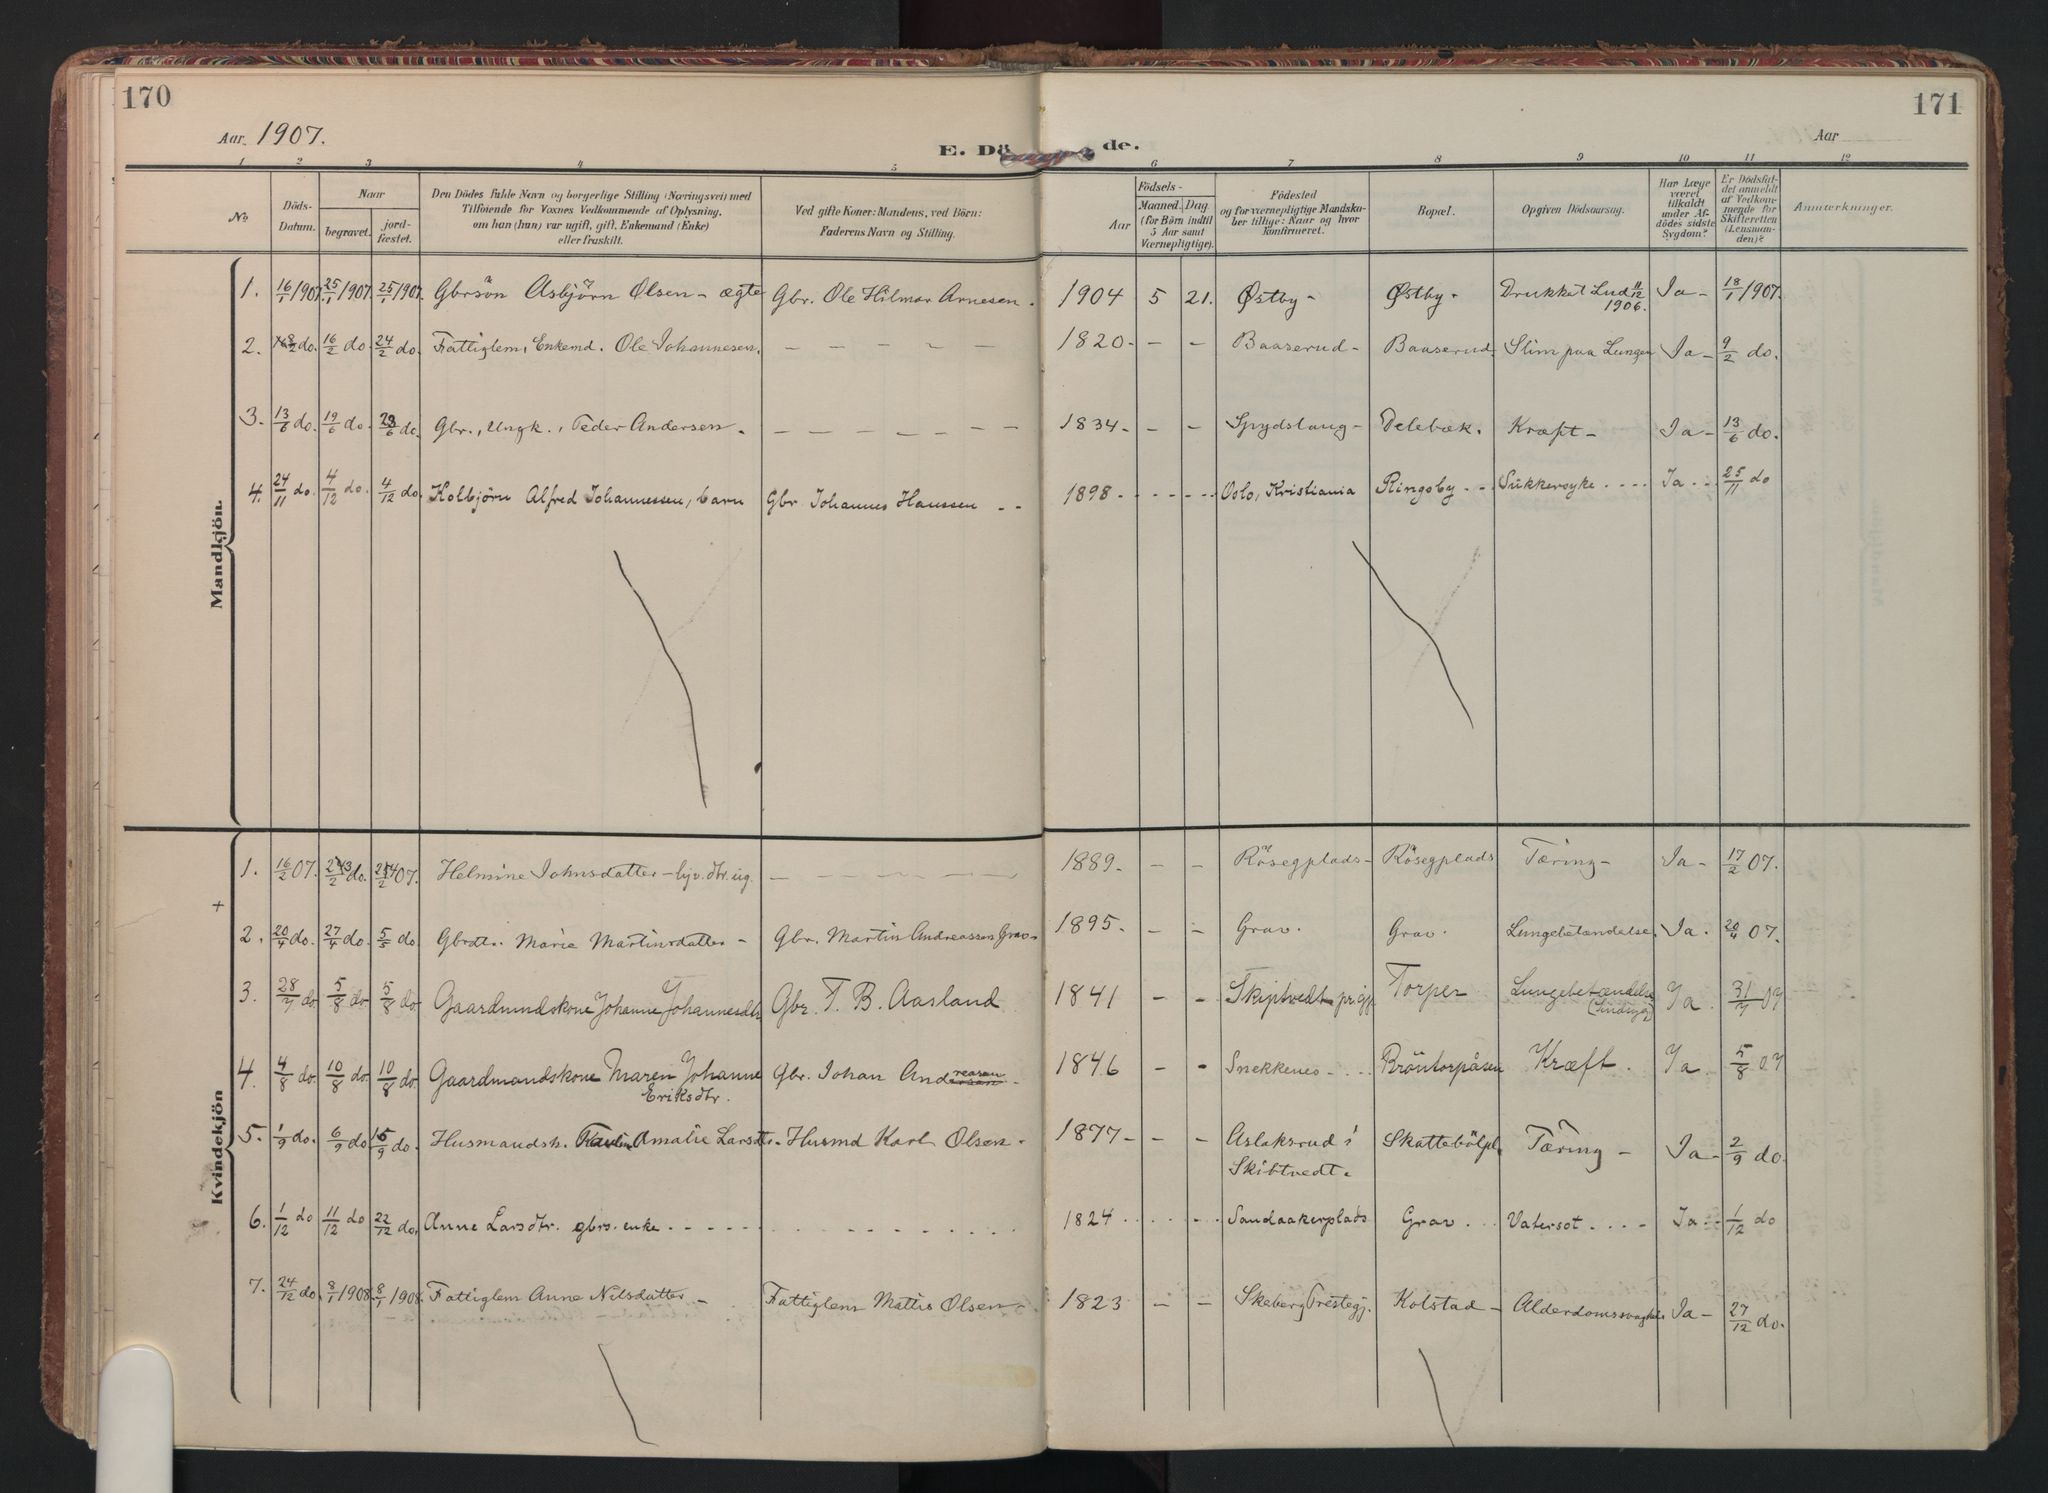 170
171
Aar 1907.
Aar
E. Dö de.
1 2 3 4 5 6 7 8 9 10 11 12
No.
Döds-Datum.
Naar
begravet.
jord-fæstet.
Den Dödes fulde Navn og borgerlige Stilling (Næringsvei) med Tilföiende for Voxnes Vedkommende af Oplysning, om han (hun) var ugift, gift, Enkemand (Enke) eller fraskilt.
Ved gifte Koner: Mandens, ved Börn: Faderens Navn og Stilling.
Födsels-
Aar
Maaned. Dag
(for Börn indtil 5 Aar samt Værnepligtige).
Födested og for værnepligtige Mandskaber tillige: Naar og hvor Konfirmeret.
Bopæl.
Opgiven Dödsaarsag.
Har Læge været tilkaldt under Afdödes sidste Sygdom?
Er Dödsfaldet anmeldt af Vedkommende for Skifteretten (Lensmanden)?
Anmærkninger.
Mandkjön.
1. 16/1 1907. 25/1 1907. 25/1 1907. Gbrsön Asbjörn Olsen - ægte Gbr. Ole Hilmar Arnesen. 1904 5 21. Østby - Østby. Drukket Lud 11/12 1906. Ja - 18/1 1907.
2. 8/2 do. 16/2 do. 24/2 do. Fattiglem, Enkemd. Ole Johannesen. - - - - - 1820 - - - Baaserud - Baaserud Slim paa Lungen Ja - 9/2 do.
3. 13/6 do. 19/6 do. 23/6 do. Gbr., Ungk., Peder Andersen. - - - - - - 1834 - - - Spydslaug - Delebæk. Kræft - Ja - 13/6 do.
4. 24/11 do. 4/12 do. 4/12 do. Kolbjörn Alfred Johannessen, barn Gbr Johannes Hanssen - - 1898 - - - - - Oslo, Kristiania Ringsby - - Sukkersyke - - - - Ja - - 25/11 do
Kvindekjön
1. 16/2 07. 23/2 do. 24/2 07. Helmine Johnsdatter - tjv. dtr. ug. - - - - - 1889. - - Rösegplads - Rösegplads Tæring - Ja - 17/2 07.
+
2. 20/4 do. 27/4 do. 5/5 do Gbrdtr. Marie Martinsdatter - Gbr. Martin Andreassen Grav - 1895. - - Grav. Grav. Lungebetændelse. Ja. 20/4 07.
3. 28/7 do 5/8 do 5/8 do. Gaardmandskone Johanne Johannesdtr Gbr. T. B. Aasland 1841 - - Skiptvedt prgj Torper Lungebetændelse Ja 31/7 07
4. 4/8 do. 10/8 do. 10/8 do. Gaardmandskone Maren Johanne Eriksdtr. Gbr. Johan Andreasen - 1846 - - Snekkenes - - - Bröntorpåsen Kræft. Ja 5/8 07
5. 1/9 do. 6/9 do 15/9 do. Husmandsk. Amalie Larsdtr. Husmd Karl Olsen - 1877 - - - Aslaksrud i Skibtvedt. Skattebölpl. Tæring - Ja - 2/9 do.
6. 1/12 do 11/12 do 22/12 do. Anne Larsdtr. gbrs. enke - - - - - - 1824 - - - - - Sandaakerplads Grav - - Vatersot - - - - Ja - - 1/12 do
7. 24/12 do. 8/1 1908. 8/1 1908. Fattiglem Anne Nilsdatter - Fattiglem Mattis Olsen - 1823 - - Skeberg Prestegj. Kolstad - Alderdomssvaghed Ja - 27/12 do.